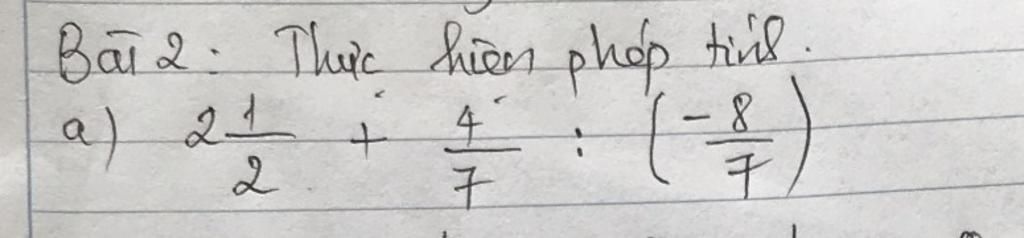 Bài 2: Thực hiện phép tính.
a) 2 1/2 + 4/7 : (-8/7)